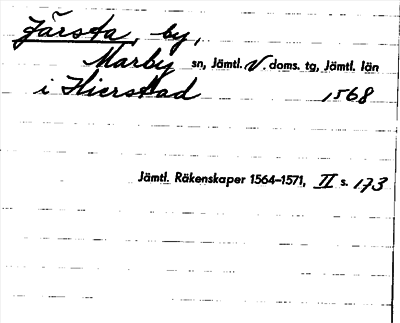 Järsta, by,
Marby sn, Jämtl. V. doms. tg, Jämtl. län
i Hierstad 1568
Jämtl. Räkenskaper 1564–1571, II s. 173